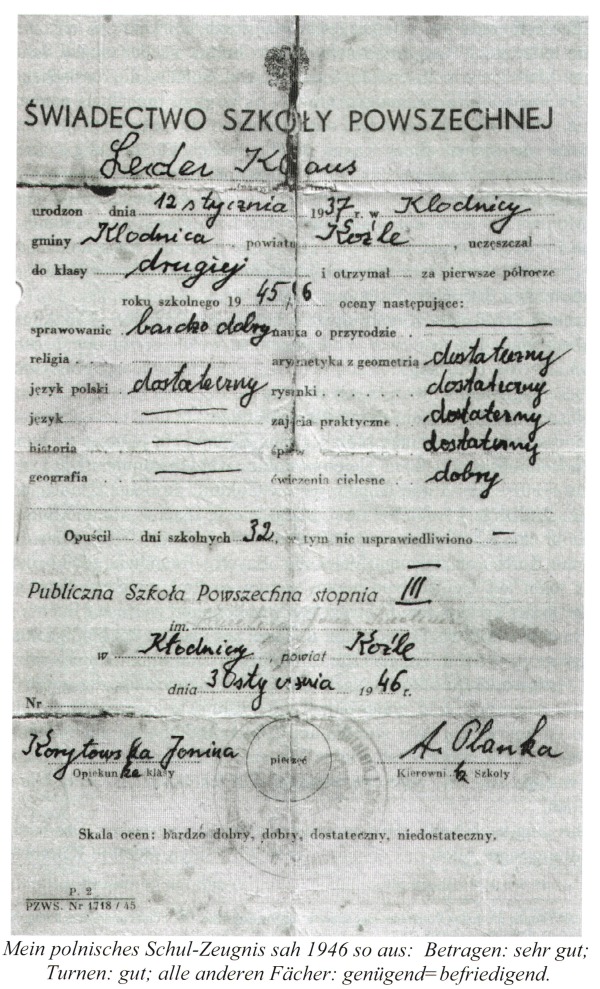 ŚWIADECTWO SZKOŁY POWSZECHNEJ
Leider Klaus
urodzon dnia 12 stycznia 1937 r. w Kłodnicy
gminy Kłodnica, powiatu Koźle, uczęszczał
do klasy drugiej i otrzymał za pierwsze półrocze
roku szkolnego 19 45/6 oceny następujące:
sprawowanie . bardzo dobry nauka o przyrodzie . —
religia . . . arytmetyka z geometrią dostateczny
język polski . dostateczny rysunki . . . . . . dostateczny
język — zajęcia praktyczne . dostateczny
historia — śpiew dostateczny
geografia — ćwiczenia cielesne . . dobry
Opuścił dni szkolnych 32, w tym nie usprawiedliwiono —
Publiczna Szkoła Powszechna stopnia III
im.
w Kłodnicy, powiat Koźle
dnia stycznia 1946 r.
Nr
Korytowska Janina A. Planka
Opiekunka klasy pieczęć Kierownik Szkoły
Skala ocen: bardzo dobry, dobry, dostateczny, niedostateczny.
P. 2
PZWS. Nr 1718 / 45
Mein polnisches Schul-Zeugnis sah 1946 so aus: Betragen: sehr gut;
Turnen: gut; alle anderen Fächer: genügend=befriedigend.